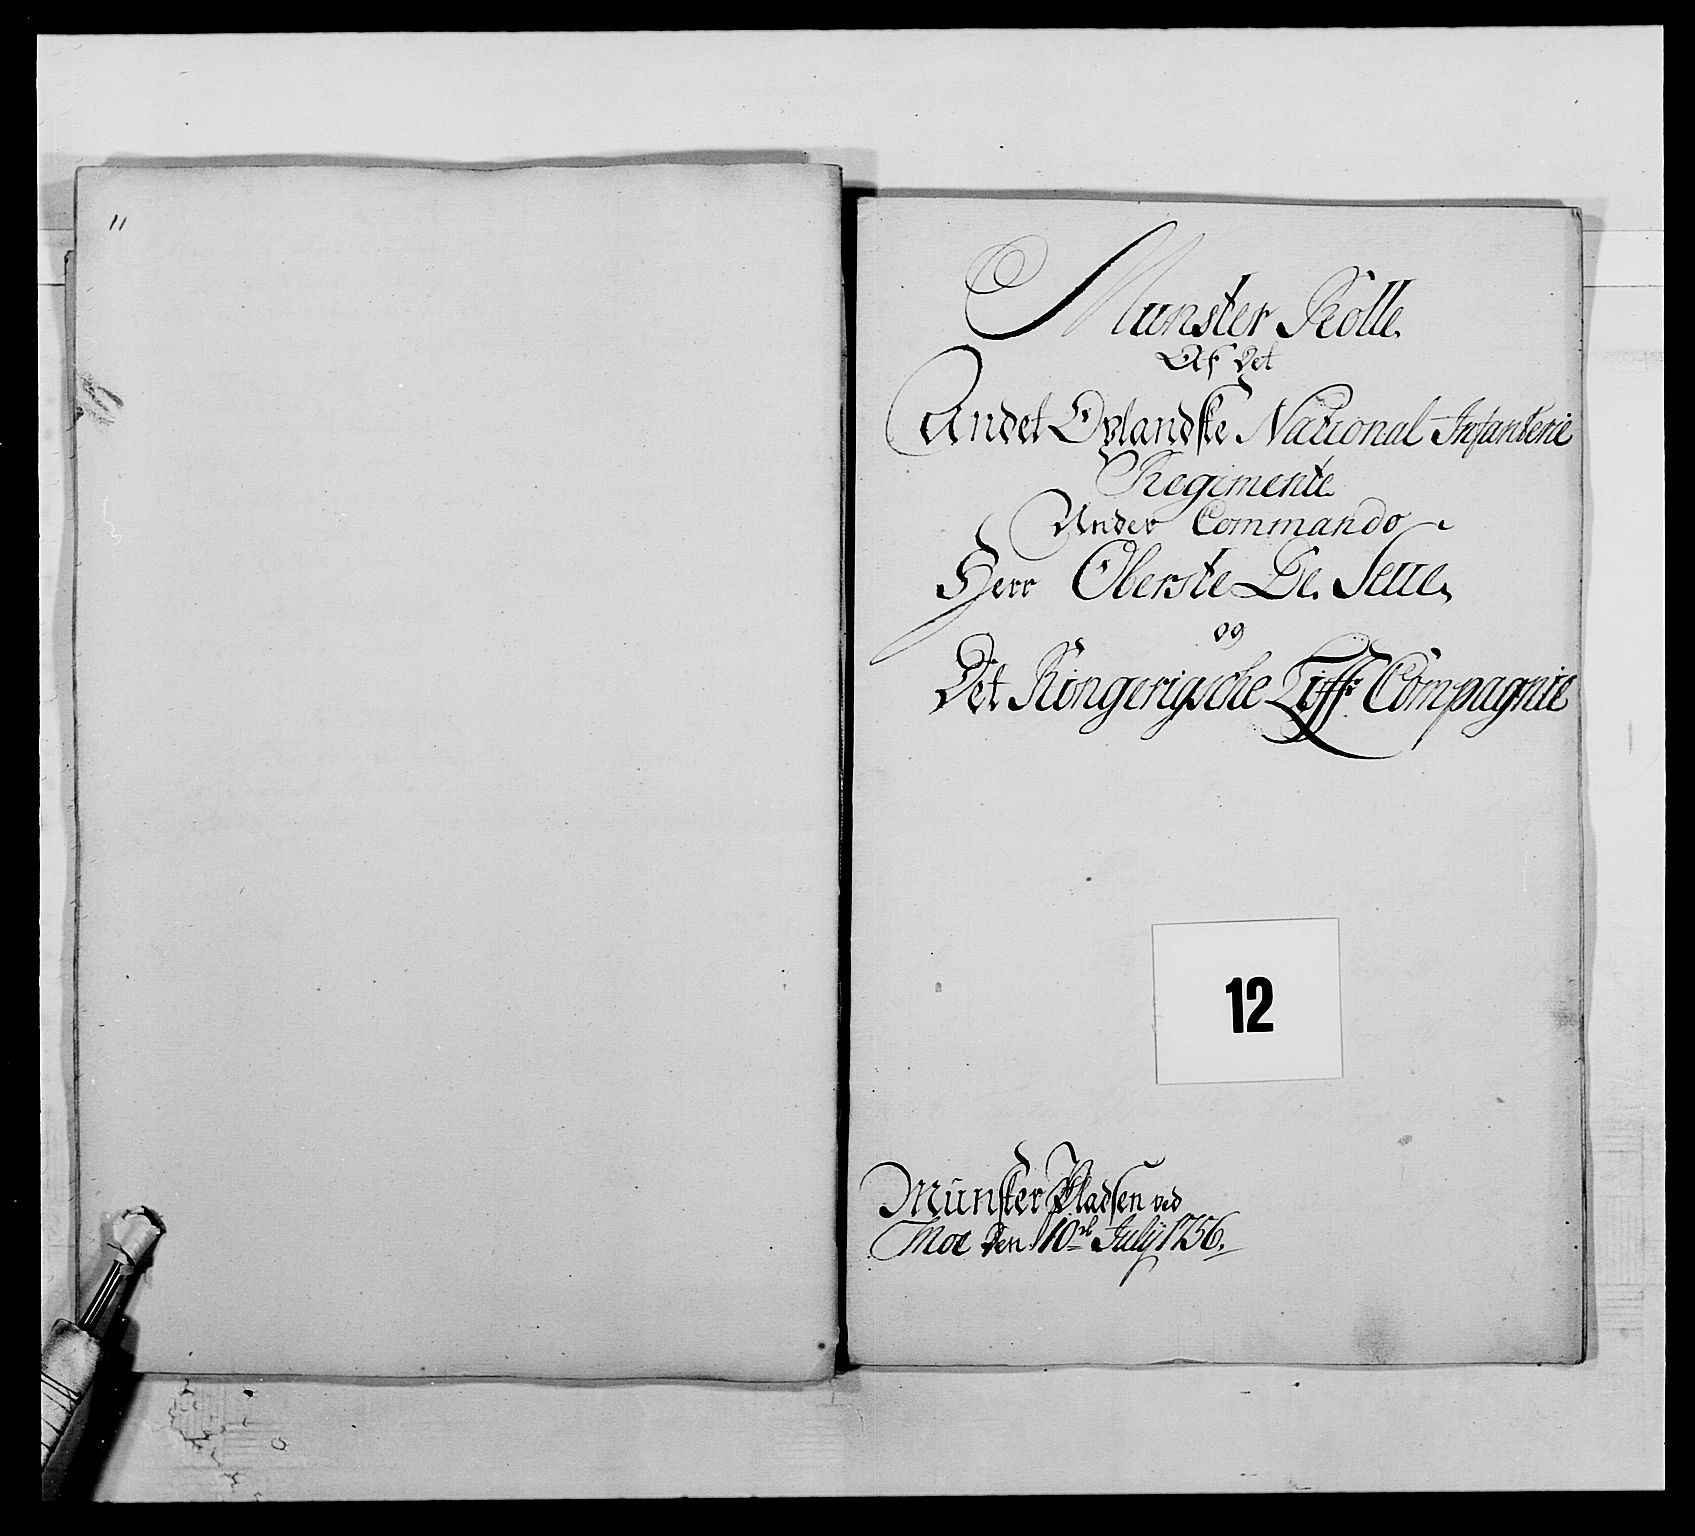 11
Munster Rolle
Af Det
Andet Oplandske National Infanterie
Regimente
Under Commando
Herr Oberste De Seue,
og
Det Ringerigsche Liff Compagnie
12
Munster Pladsen ved
Moe Den 10de Julÿ 1756.